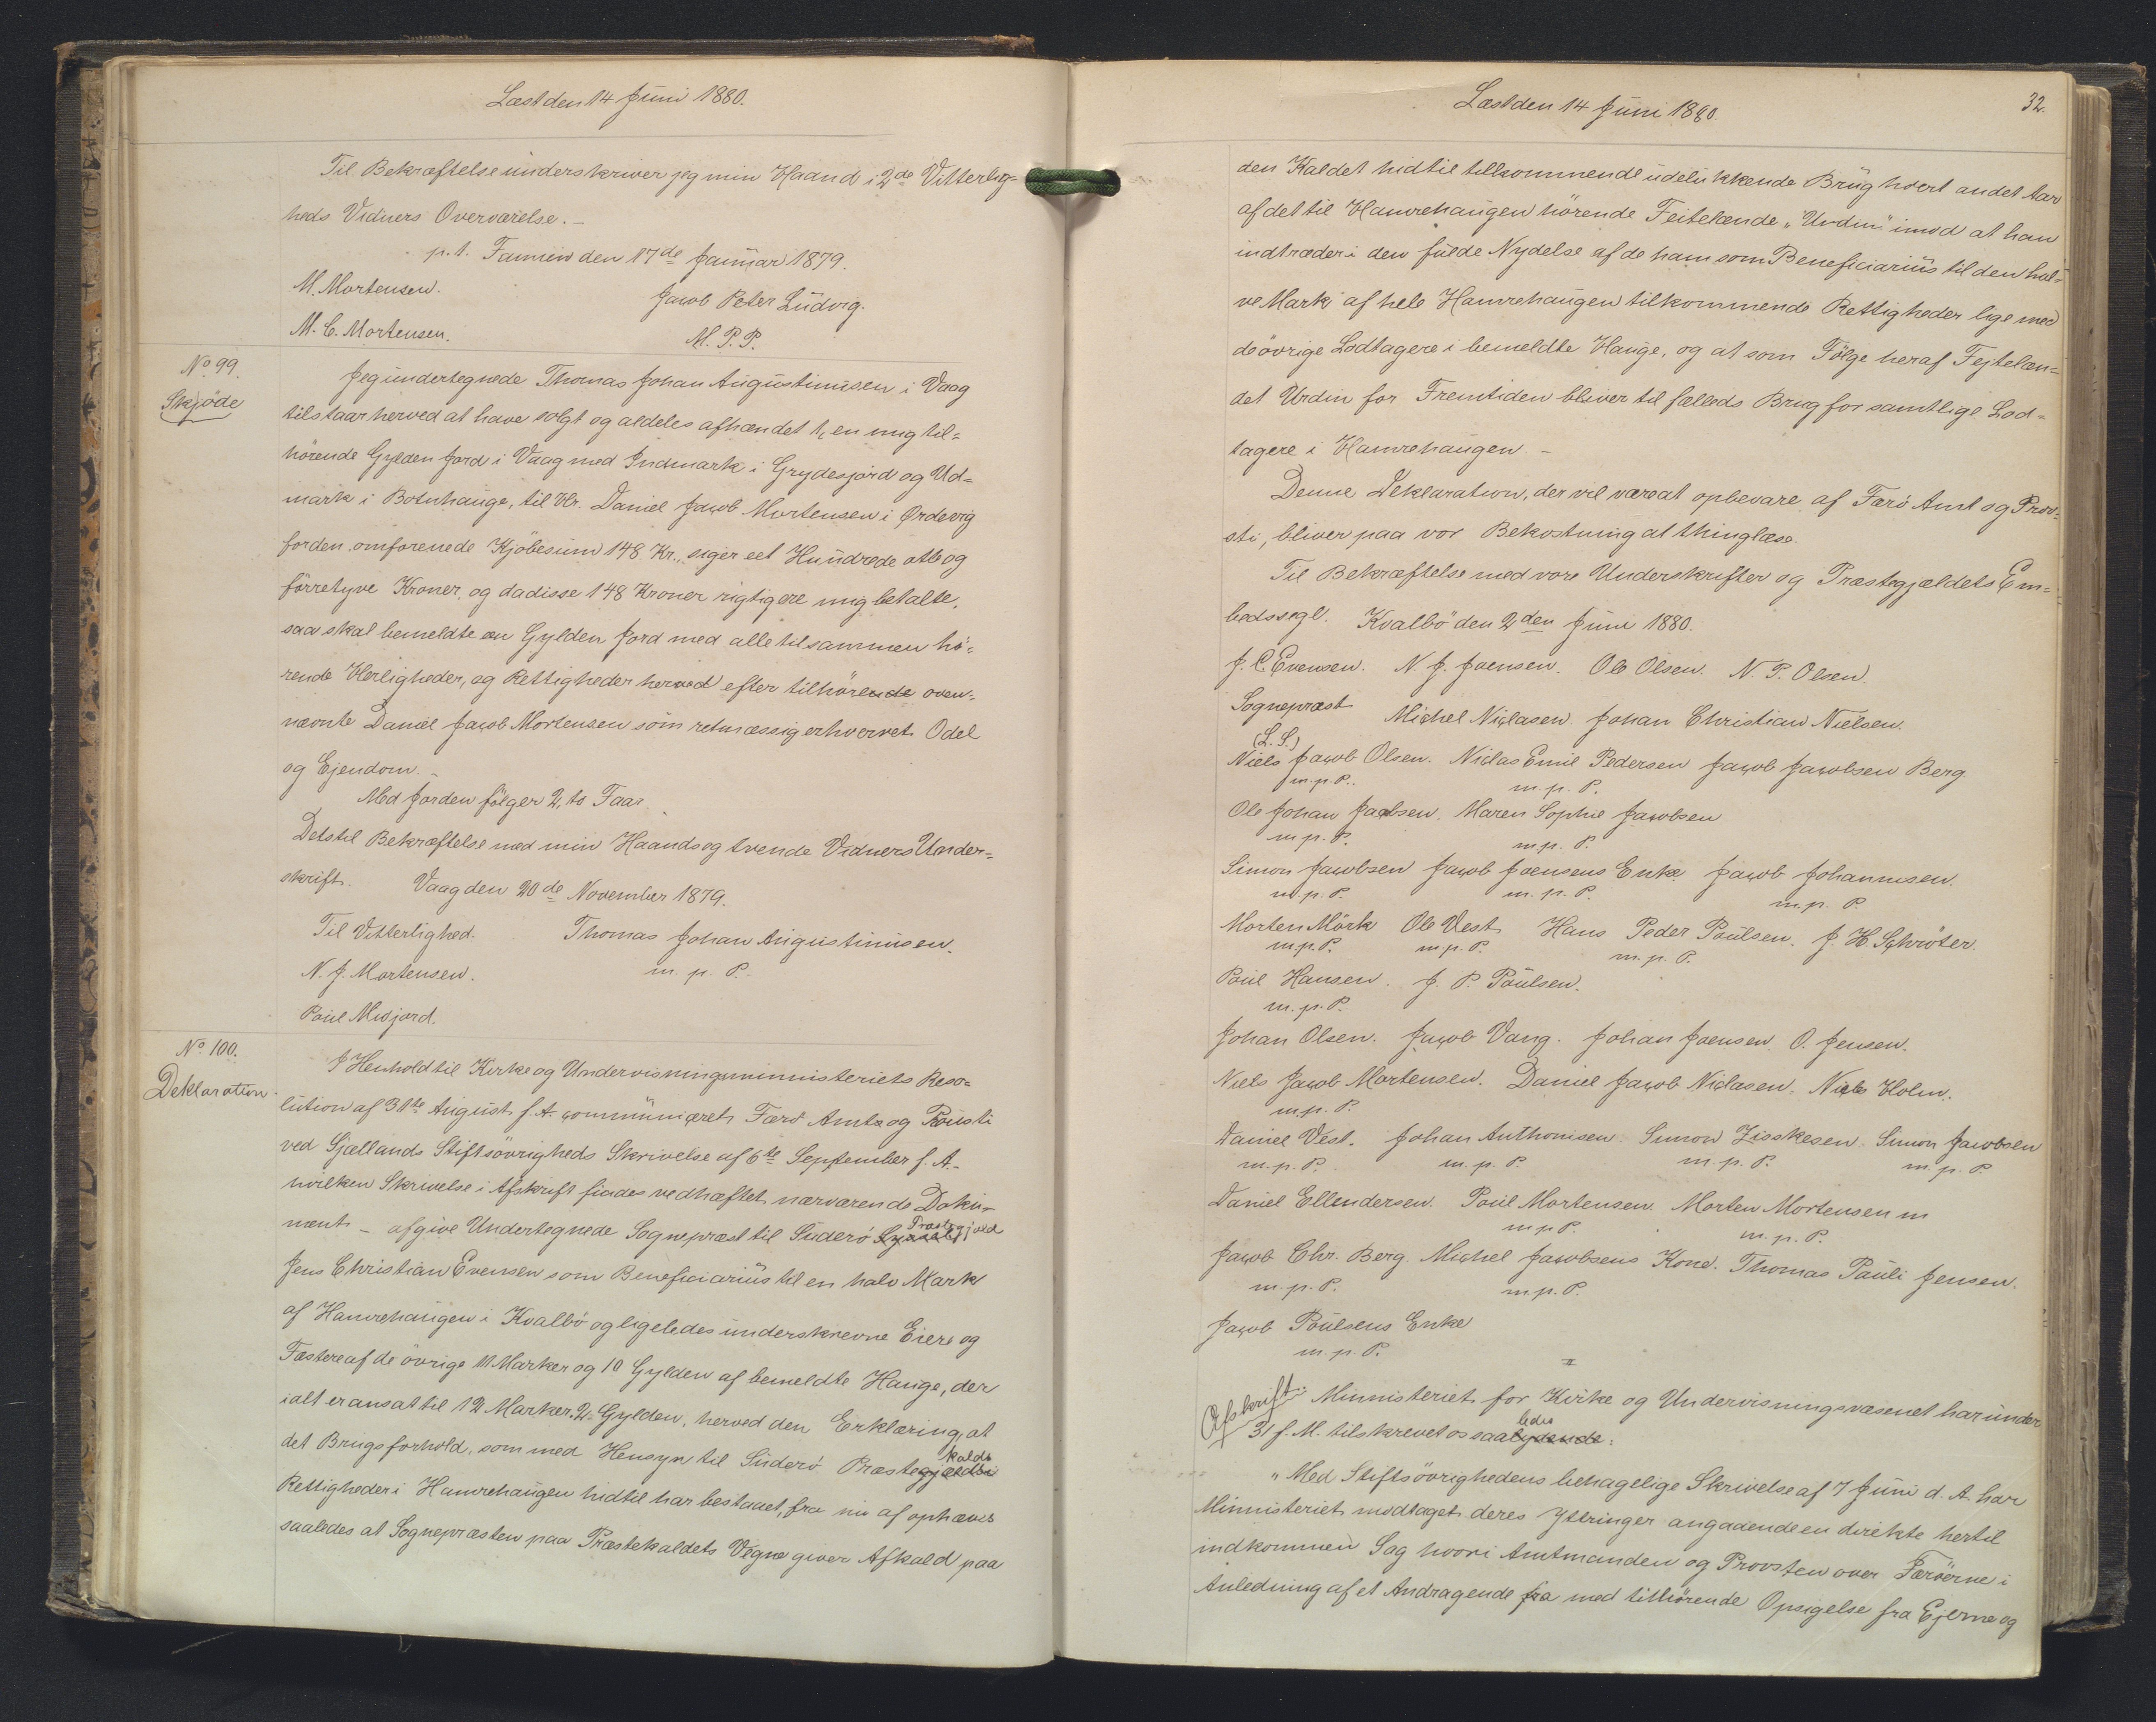 Læst den 14 Juni 1880.
Til Bekræftelse underskriver jeg min Haand i 2de Vitterlig=
heds Vidners Overværelse. –
p. t. Famien den 17de Januar 1879.
M. Mortensen.
Jacob Peter Ludvig.
M. C. Mortensen.
M. P. P.
No 99.
Skjöde
Jeg undertegnede Thomas Johan Augustinusen i Vaag
tilstaar herved at have solgt og aldeles afhændet 1, en mig til=
hörende Gylden Jord i Vaag med Indmark i Grydesjord og Ud=
mark i Botnhauge, til Hr. Daniel Jacob Mortensen i Ørdevig
for den omforenede Kjöbesum 148 Kr., siger eet Hundrede otte og
förretyve Kroner, og da disse 148 Kroner rigtig ere mig betalte,
saa skal bemeldte en Gylden Jord med alle tilsammen hö=
rende Herligheder, og Rettigheder herved efter tilhörende oven=
nævnte Daniel Jacob Mortensen som retmæssig erhvervet Odel
og Ejendom. –
Med Jorden fölger 2, to Faar.
Dets til Bekræftelse med min Haands og tvende Vidners Under=
skrift. Vaag den 20de November 1879.
Til Vitterlighed. Thomas Johan Augustinusen.
N. J. Mortensen. m. p. P.
Poul Midjord.
No 100.
Deklaration
I Henhold til Kirke og Undervisningsministeriets Reso=
lution af 31te August f. A. communiceret Færö Amt og Provsti
ved Sjællands Stiftsövrigheds Skrivelse af 6te September f. A. –
hvilken Skrivelse i Afskrift findes vedhæftet nærværende Doku=
ment – afgive Undertegnede Sognepræst til Suderö Præstegjæld
Jens Christian Evensen som Beneficiarius til en halv Mark
af Hamrehaugen i Kvalbö og ligeledes underskrevne Eiere og
Fæstere af de övrige 11 Marker og 10 Gylden af bemeldte Hauge, der
ialt er ansat til 12 Marker 2 Gylden, herved den Erklæring, at
det Brugsforhold, som med Hensyn til Suderö Præstekalds
Rettigheder i Hamrehaugen hidtil har bestaaet, fra nu af ophæves
saaledes at Sognepræsten paa Præstekaldets Vegne giver Afkald paa
Læst den 14 Juni 1880.
32.
den Kaldet hidtil tilkommende udelukkende Brug hvert andet Aar
af det til Hamrehaugen hörende Feitelænde „Urdin" imod at han
indtræder i den fulde Nydelse af de ham som Beneficiarius til den hal=
ve Mark af hele Hamrehaugen tilkommende Rettigheder lige med
de övrige Lodtagere i bemeldte Hauge, og at som Fölge heraf Fejtelæn=
det Urdin for Fremtiden bliver til fælleds Brug for samtlige Lod=
tagere i Hamrehaugen. –
Denne Deklaration, der vil være at opbevare af Færö Amt og Prov=
sti, bliver paa vor Bekostning at thinglæse.
Til Bekræftelse med vore Underskrifter og Præstegjældets Em=
bedssegl. Kvalbö den 2den Juni 1880.
J. C. Evensen. N. J. Joensen. Ole Olsen. N. P. Olsen.
Sognepræst Michel Niclasen. Johan Christian Nielsen.
(L. S.)
Niels Jacob Olsen. Niclas Emil Pedersen Jacob Jacobsen Berg.
m. p. P. m. p. P.
Ole Johan Jacobsen. Maren Sophie Jacobsen
m. p. P. m. p. P.
Simon Jacobsen Jacob Joensens Enke. Jacob Johannesen.
m. p. P. m. p. P. m. p. P.
Morten Mörk Ole Vest Hans Peder Poulsen. J. H. Schröter.
m. p. P. m. p. P. m. p. P.
Poul Hansen. J. P. Poulsen.
m. p. P.
Johan Olsen. Jacob Vang. Johan Joensen. O. Jensen.
Niels Jacob Mortensen. Daniel Jacob Niclasen. Niels Holm.
m. p. P.
Daniel Vest. Johan Anthonisen. Simon Zisskesen. Simon Jacobsen
m. p. P. m. p. P. m. p. P. m. p. P.
Daniel Ellendersen. Poul Mortensen. Morten Mortensen m
m. p. P. m. p. P.
Jacob Chr. Berg. Michel Jacobsens Kone. Thomas Pauli Jensen.
m. p. P. m. p. P.
Jacob Poulsens Enke
m. p. P.
Afskrift. Ministeriet for Kirke og Undervisningsvæsenet har under
31 f. M. tilskrevet os saaledes:
„Med Stiftsövrighedens behagelige Skrivelse af 7 Juni d. A. har
Ministeriet modtaget deres Ytringer angaaende en direkte hertil
indkommen Sag hvori Amtmanden og Provsten over Færöerne i
Anledning af et Andragende fra med tilhörende Opsigelse fra Ejerne og